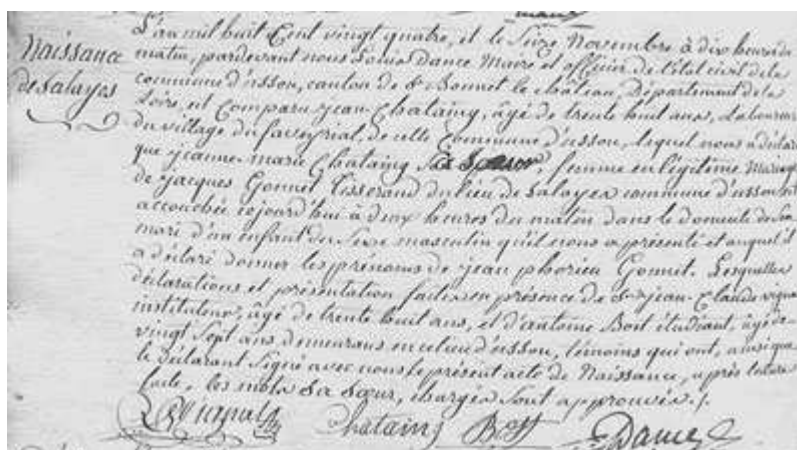 Naissance
de Salayes
L'an mil huit Cent vingt quatre, et le Seize Novembre à dix heures du
matin, pardevant nous Louis Dance Maire et officier de l'état civil de la
commune d'usson, canton de St Bonnet le château, Département de la
Loire, est Comparu jean Chataing, âgé de trente huit ans,
du village du faveyrial, de cette Commune d'usson, lequel nous a déclaré
que jeanne-marie Chataing Sa Soeur, femme en légitime Mariage
de jacques Gonnet Tisserand du lieu de Salayes commune d'usson est
accouchée cejourd'hui à deux heures du matin dans le domicile de Son
mari d'un enfant du Sexe masculin qu'il nous a présenté et auquel il
a déclaré donner les prénoms de jean Gonnet. Lesquelles
déclarations et présentation faites en présence de Sr jean-Claude
instituteur, âgé de trente huit ans, et d'antoine étudiant, âgé de
vingt Sept ans demeurans en ce lieu d'usson, témoins qui ont, ainsi que
le déclarant Signé avec nous le présent acte de Naissance, après lecture
faite, les mots Sa Soeur, chargés Sont approuvés./.
Chataing Dance